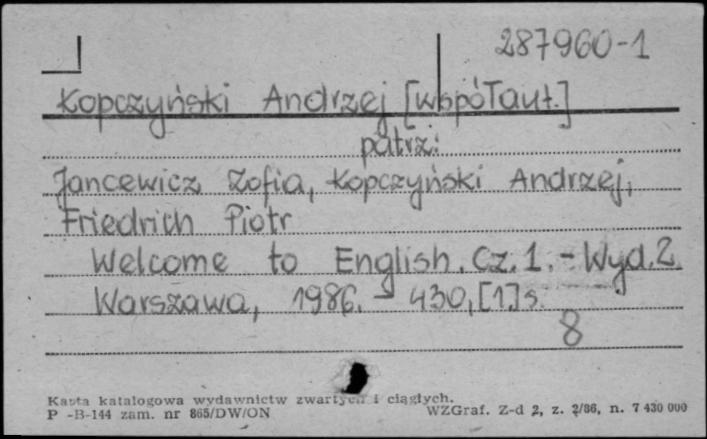 287960-1
Kopczyński Andrzej [współaut.]
patrz:
Jancewicz Zofia, Kopczyński Andrzej,
Friedrich Piotr
Welcome to English. Cz. 1. - Wyd. 2
Warszawa, 1986. - 430, [1] s.
8
Karta katalogowa wydawnictw zwartych i ciągłych.
P -B-144 zam. nr 865/DW/ON WZGraf. Z-d 2, z. 2/86, n. 7 430 000